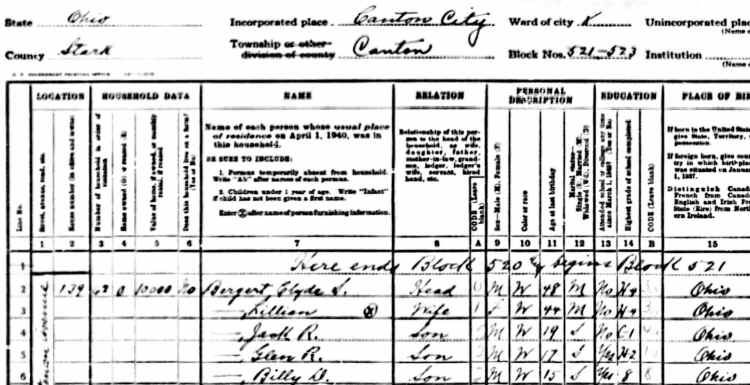 State Ohio Incorporated place Canton City Ward of city K Unincorporated plac
(Name o
County Stark Township or other division of county Canton Block Nos. 521-523 Institution
(Name
LOCATION HOUSEHOLD DATA NAME RELATION PERSONAL DESCRIPTION EDUCATION PLACE OF BIR
Line No.
Street, avenue, road, etc.
House number (in cities and towns)
Number of household in order of visitation
Home owned (O) or rented (R)
Value of home, if owned, or monthly rental, if rented
Does this household live on a farm? (Yes or No)
Name of each person whose usual place
of residence on April 1, 1940, was in
this household.
BE SURE TO INCLUDE:
1. Persons temporarily absent from household.
Write "Ab" after names of such persons.
2. Children under 1 year of age. Write "Infant"
if child has not been given a first name.
Enter ⊗ after name of person furnishing information.
Relationship of this per-
son to the head of the
household, as wife,
daughter, father,
mother-in-law, grand-
son, lodger, lodger's
wife, servant, hired
hand, etc.
CODE (Leave blank)
Sex—Male (M), Female (F)
Color or race
Age at last birthday
Marital status—
Single (S), Married (M),
Widowed (Wd), Divorced (D)
Attended school or college any time
since March 1, 1940? (Yes or No)
Highest grade of school completed
CODE (Leave blank)
If born in the United States,
give State, Territory,
possession.
If foreign born, give cou
try in which birthplac
was situated on January
1, 1937.
Distinguish Canad
French from Canad
English and Irish Fr
State (Eire) from Nort
ern Ireland.
1 2 3 4 5 6 7 8 A 9 10 11 12 13 14 B 15
1 Here ends Block 520 begins Block 521
2 139 O 10000 No Bergert, Clyde S. Head 0 M W 48 M No H4 Ohio
3 — Lillian ⊗ Wife 1 F W 44 M No H4 Ohio
4 — Jack R. Son M W 19 S No C1 Ohio
5 — Glen R. Son M W 17 S Yes H2 Ohio
6 — Billy D. Son M W 15 S Yes 8 Ohio